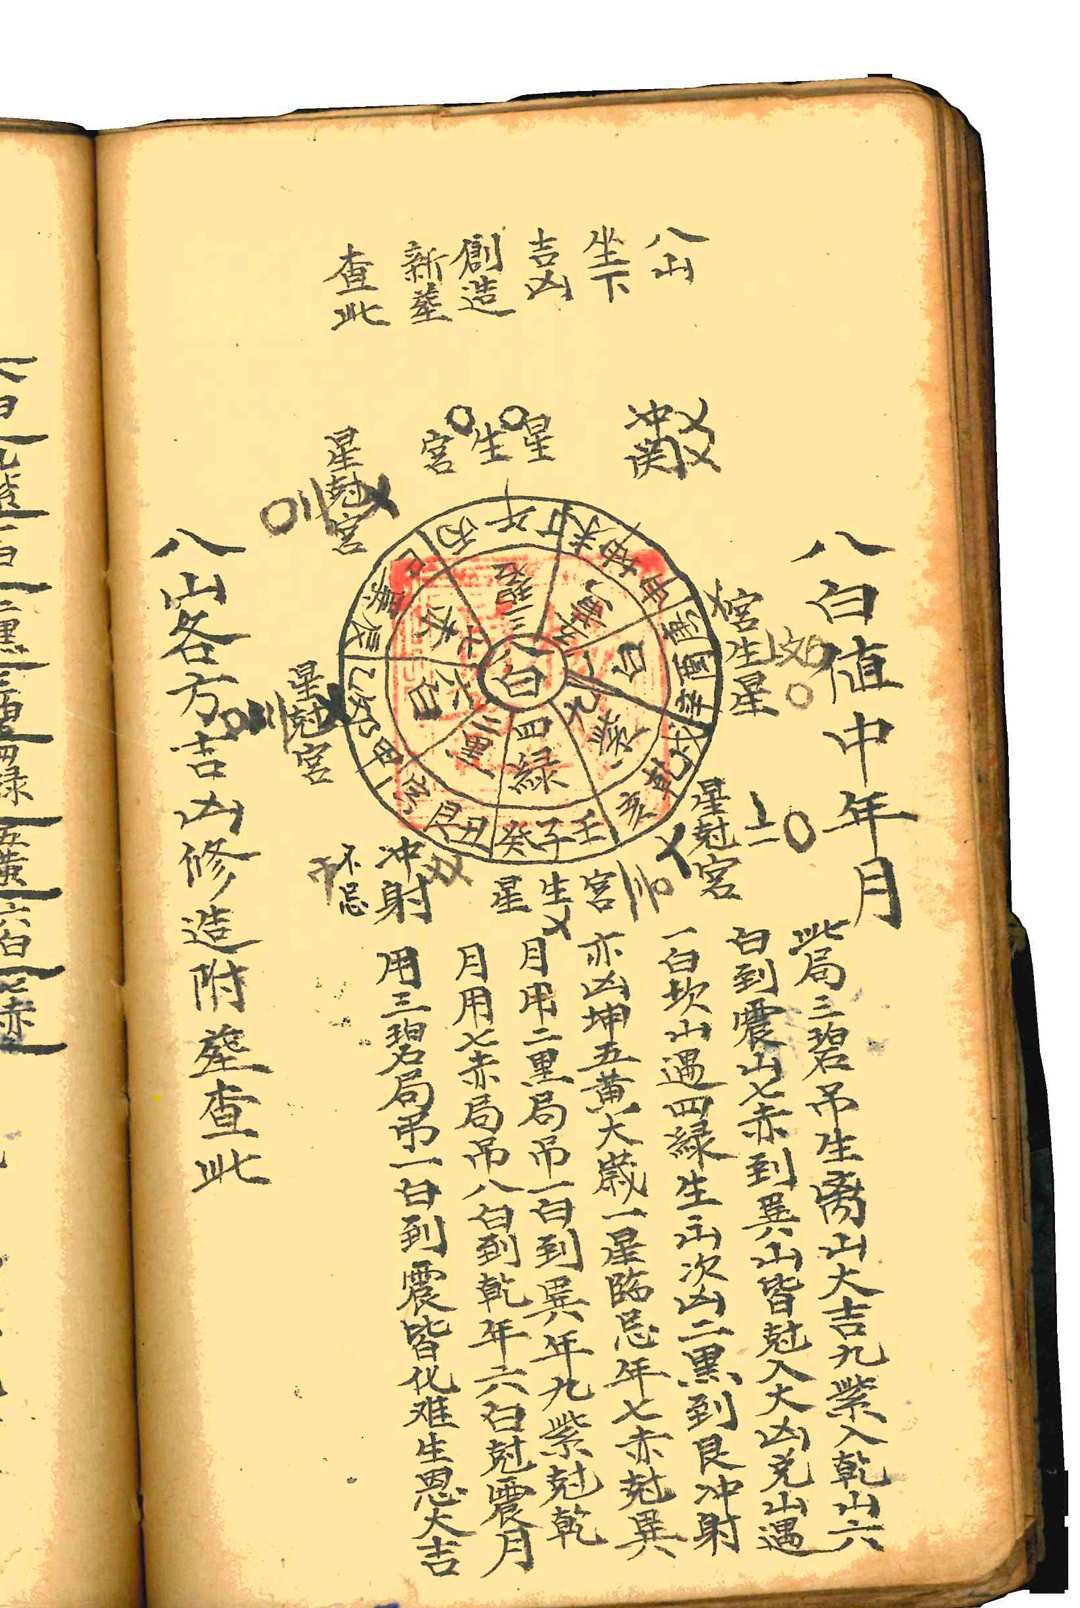 八山
坐下
吉凶
創造
新塟
查此
八白值中年月
冲関
星生宮
星尅宮
宮生星
星尅宮
星尅宮
宮生星
冲射
不忌
八白
三碧
五黃
一白
九紫
四綠
二黑
六白
七赤
丙午丁
未坤申
庚酉辛
戌乾亥
壬子癸
丑艮寅
甲卯乙
辰巽巳
此局三碧吊生离山大吉九紫入乾山六
白到震山七赤到巽山皆尅入大凶兑山遇
一白坎山遇四綠生山次凶二黑到艮冲射
亦凶坤五黄大歲一星臨忌年七赤尅巽
月用二黑局吊一白到巽年九紫尅乾
月用七赤局吊八白到乾年六白尅震月
用三碧局吊一白到震皆化难生恩大吉
八山各方吉凶修造附塟查此
六白
九紫
一白
二黑
三碧
四綠
五黃
六白
七赤